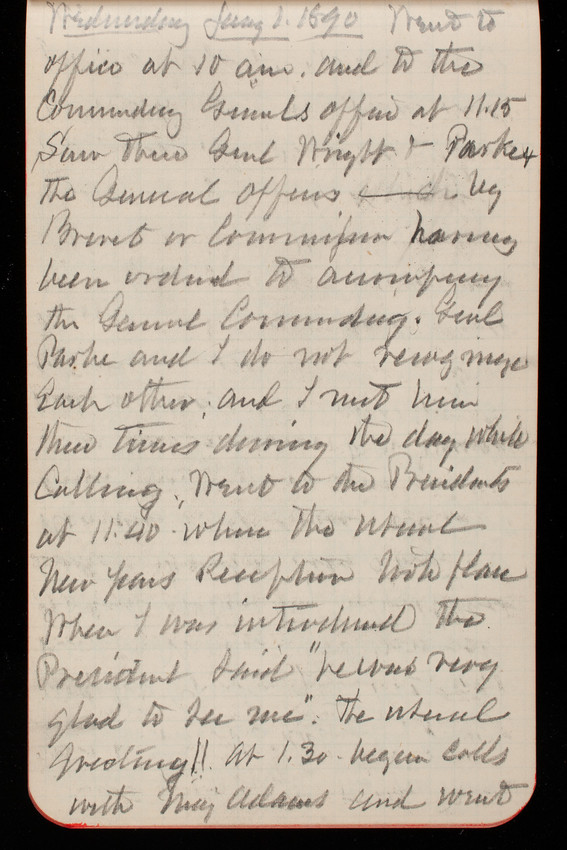 Wednesday Jany 1. 1890 Went to
office at 10 am. and to the
Commanding Generals office at 11.15
Saw there Genl Wright & Parke &
the General Officers by
Brevet or Commission having
been ordered to accompany
the General Commanding. Genl
Parke and I do not recognize
Each other, and I met him
three times during the day while
Calling. Went to the Presidents
at 11:40 where the usual
New Years Reception took place
When I was introduced the
President said "he was very
glad to see me". The usual
greeting!! At 1.30 began calls
with Maj Adams and went